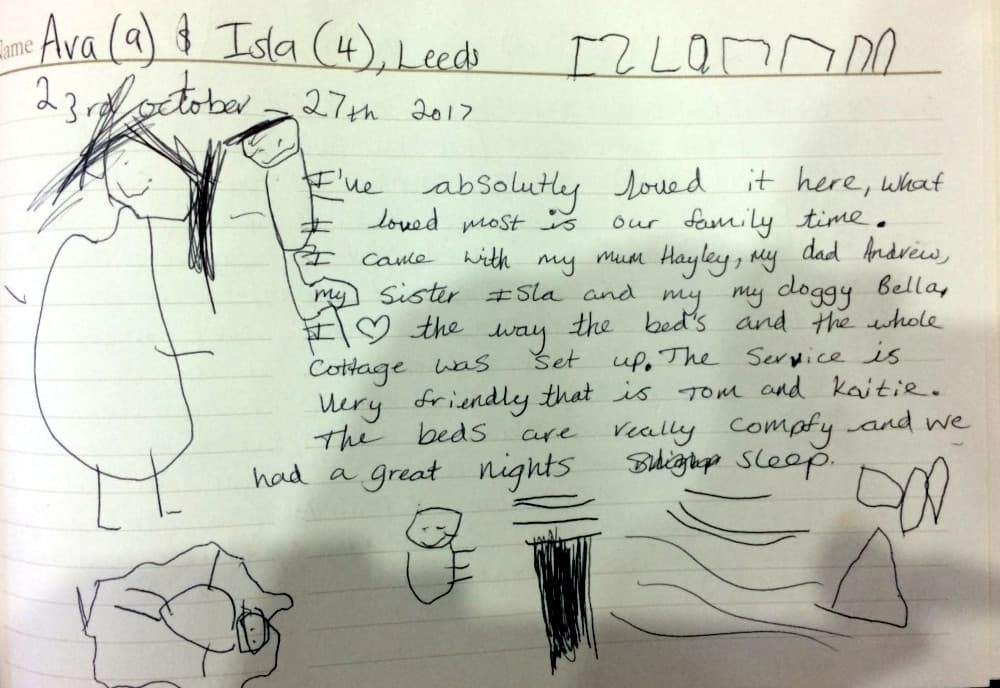 Name Ava (9) & Isla (4), Leeds
23rd october - 27th 2017
I've absolutly loved it here, what
I loved most is our family time.
I came with my mum Hayley, my dad Andrew,
my sister Isla and my my doggy Bella,
I ♡ the way the bed's and the whole
cottage was set up. The service is
very friendly that is Tom and Kaitie.
The beds are really compfy and we
had a great nights sleep.